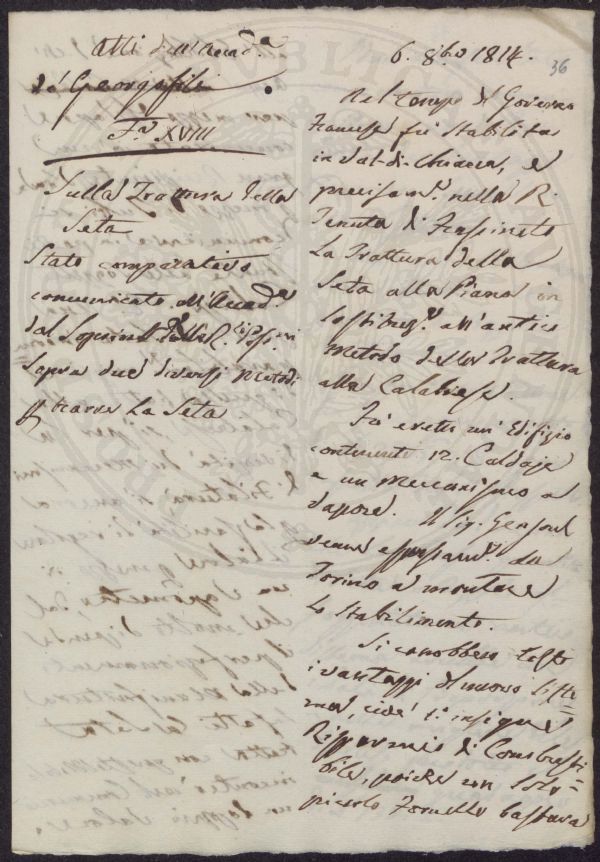 Atti dell'Accad.a
de' Georgofili
F.a XVIII
Sulla Trattura della
Seta
Stato comparativo
comunicato all'Accad.a
dal Soprint.
sopra due diversi Metodi
p trarre la Seta
6. 8bre 1814.
36
Nel tempo del Governo
Francese fu stabilita
in Val-di-Chiana, e
precisam.e nella R.
Tenuta di Frassineto
La Trattura della
Seta alla Piana in
all'antico
Metodo della Trattura
alla Calabrese.
Fu eretto un'Edifizio
contenente 12. Caldaje
e un Meccanismo a
Vapore. Il Sig. Gensoul
venne espressam.e da
Torino a montare
Lo Stabilimento.
Si conobbero tosto
i vantaggi del nuovo Siste=
ma, cioè 1.o insigne
Risparmio di Combusti=
bile, poiché un solo
piccolo Fornello bastava